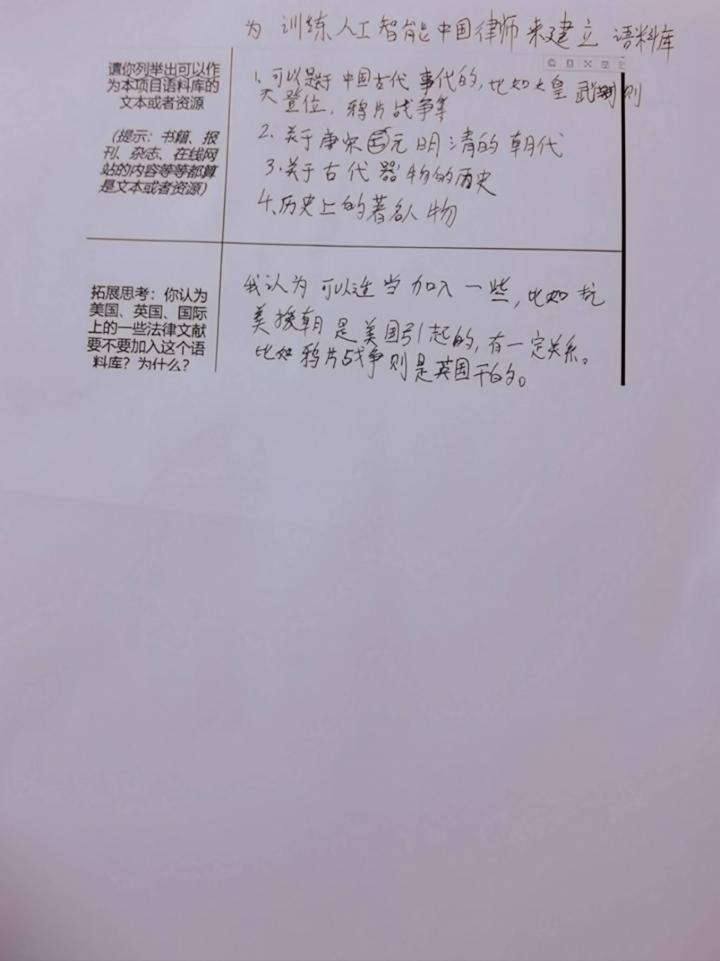 为训练人工智能中国律师来建立语料库
请你列举出可以作
为本项目语料库的
文本或者资源
(提示：书籍、报
刊、杂志、在线网
站的内容等等都算
是文本或者资源)
1、可以是关于中国古代事代的，比如女皇武则
天登位，鸦片战争等
2、关于唐宋元明清的朝代
3、关于古代器物的历史
4、历史上的著名人物
拓展思考：你认为
美国、英国、国际
上的一些法律文献
要不要加入这个语
料库？为什么？
我认为可以适当加入一些，比如抗
美援朝是美国引起的，有一定关系。
比如鸦片战争则是英国干的。